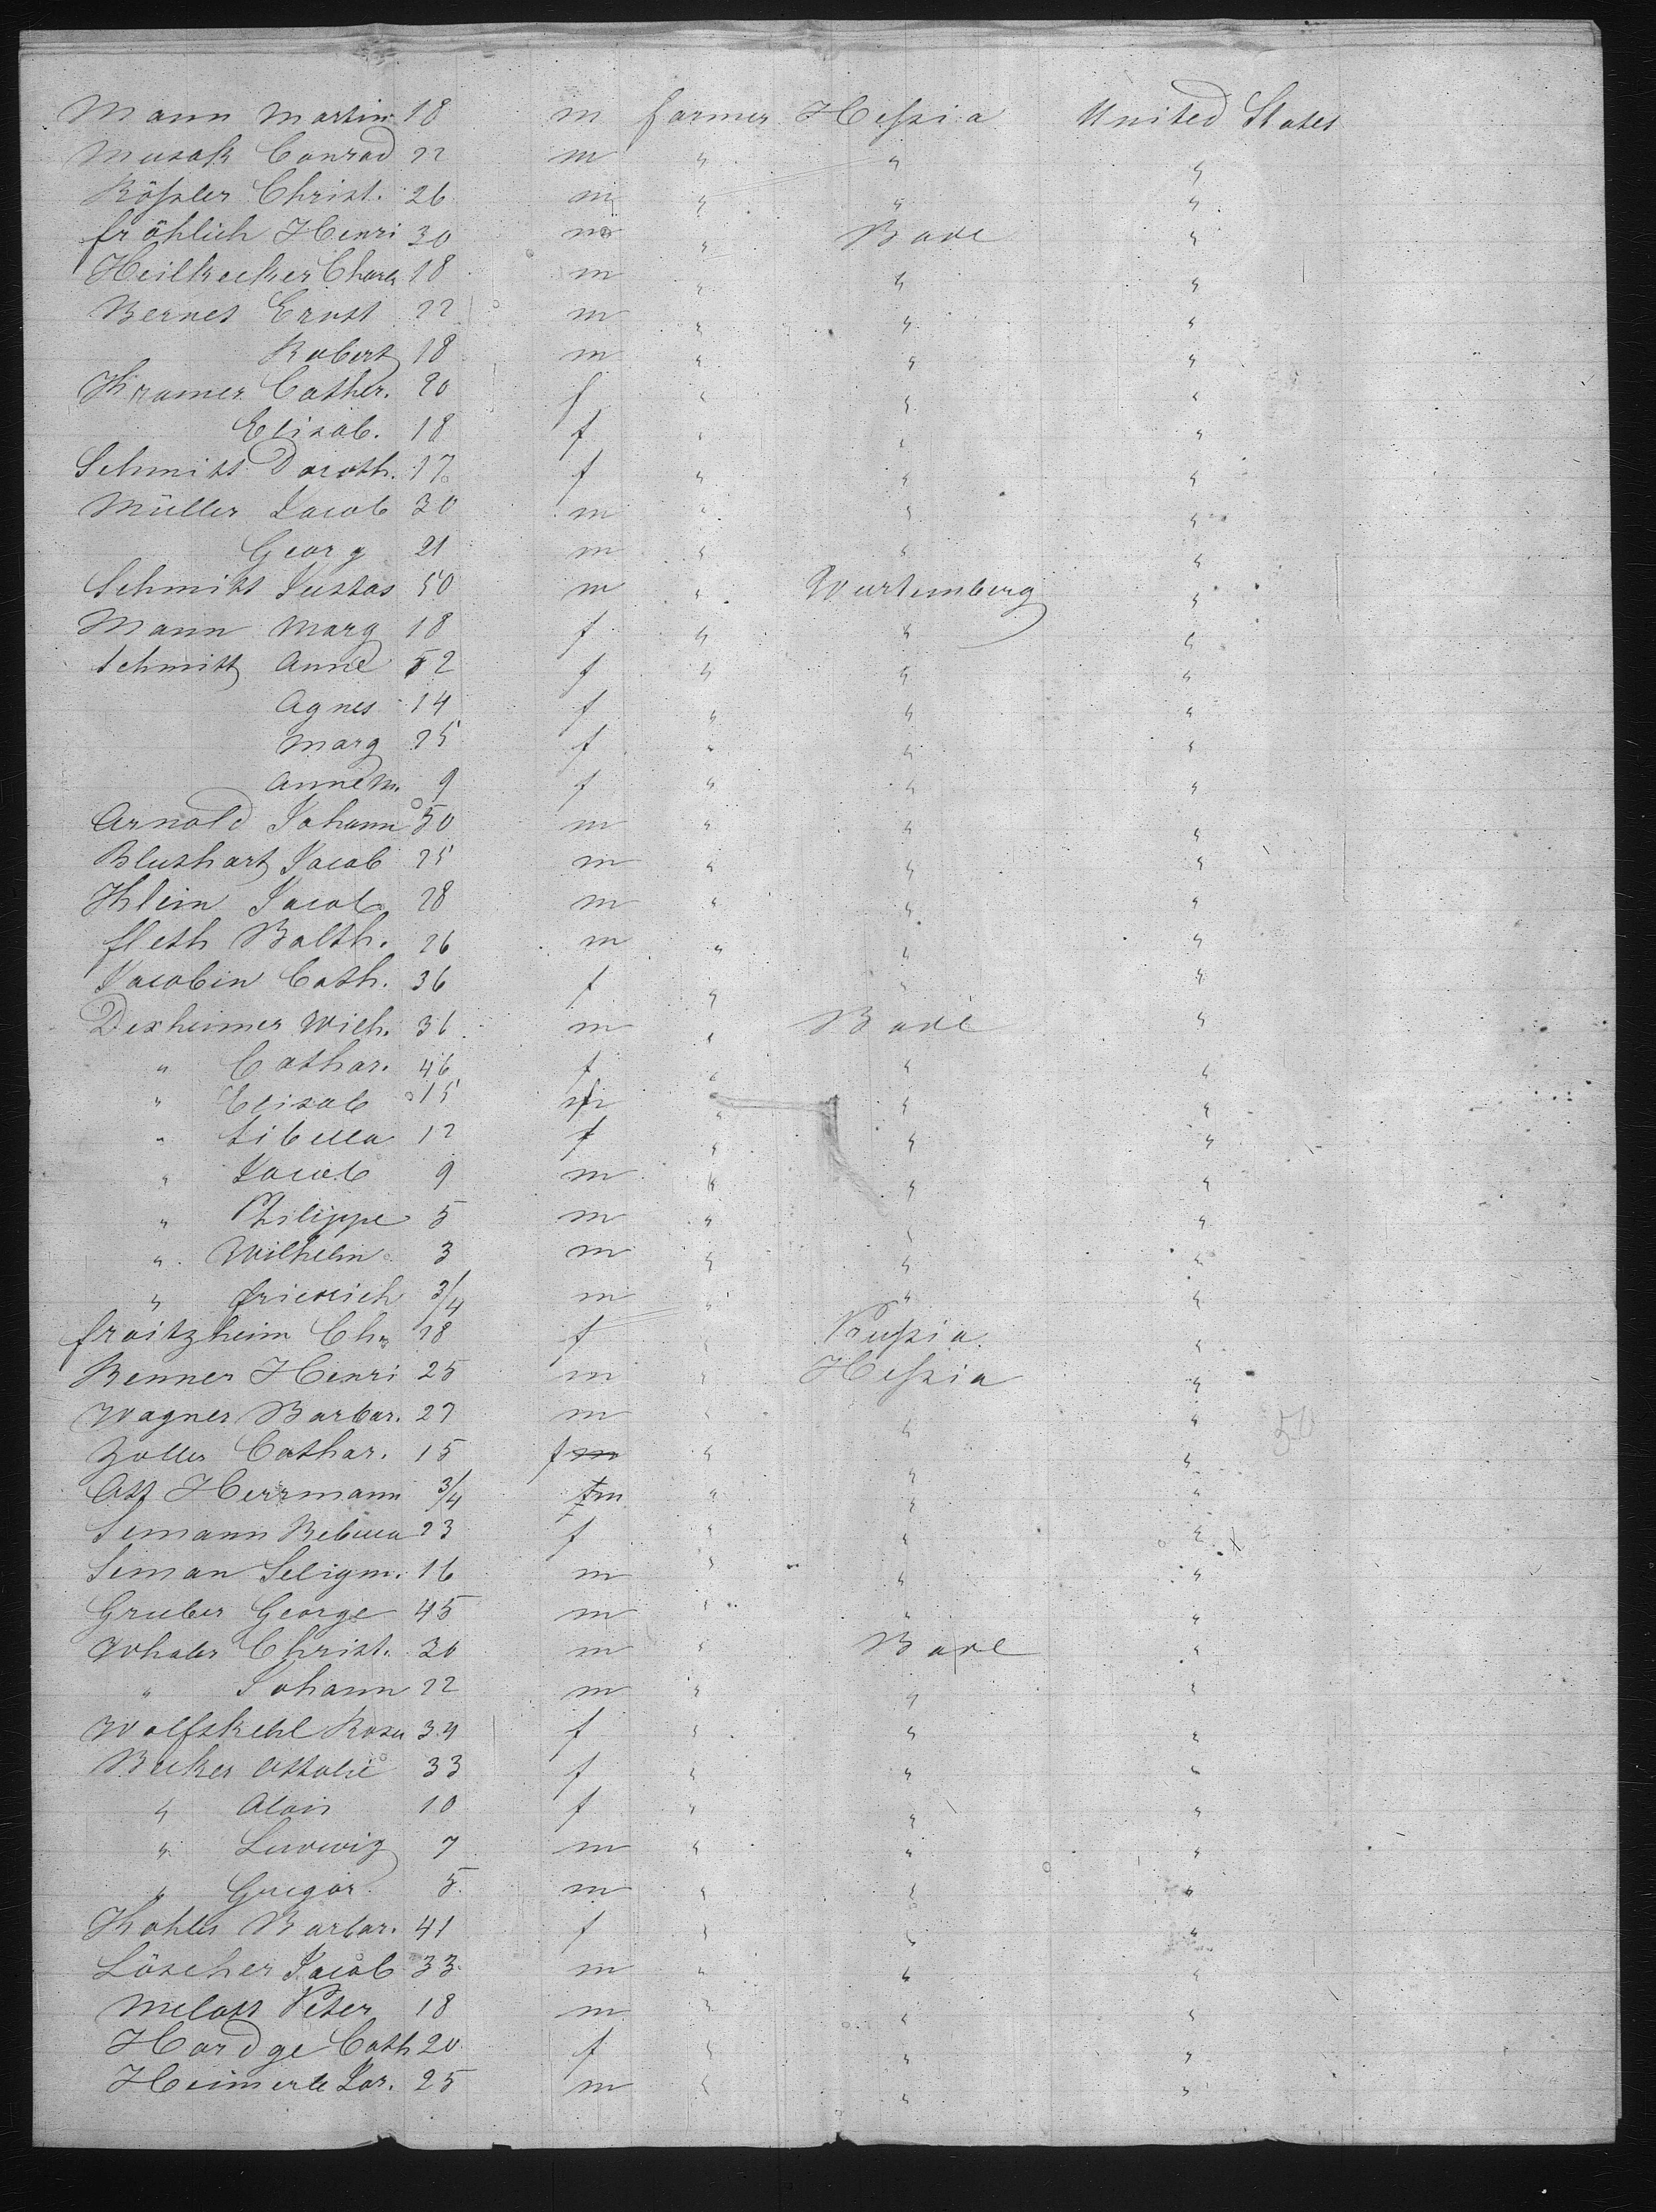 Mann Martin 18 m farmer Hessia United States
Musak Conrad 22 m " " "
Rössler Christ. 26 m " " "
fröhlich Henri 30 m " Bade "
Heilkecker Charls 18 m " " "
Bernet Ernst 22 m " " "
Robert 18 m " " "
Kramer Cather. 20 f " " "
Elisab. 18 f " " "
Schmitt Doroth. 17 f " " "
Müller Jacob 30 m " " "
Georg 21 m " " "
Schmitt Justas 50 m " Wurtemberg "
Mann Marg 18 f " " "
Schmitt Anne 52 f " " "
Agnes 14 f " " "
Marg 25 f " " "
Anne M. 9 f " " "
Arnold Johann 50 m " " "
Bluthart Jacob 25 m " " "
Klein Jacob 28 m " " "
fleth Balth. 26 m " " "
Jacobin Cath. 36 f " " "
Dexheimer Wilh. 36 m " Bade "
" Cathar. 46 f " " "
" Elisab 15 f " " "
" Sibella 12 f " " "
" Jacob 9 m " " "
" Philippe 5 m " " "
" Wilhelm 3 m " " "
" friedrich 3/4 m " " "
fraitzheim Chr 28 f " Prussia "
Benner Henri 25 m " Hessia "
Wagner Barbar. 27 m " " "
Zoller Cathar. 15 f m " " " 50
Ott Herrmann 3/4 f m " " "
Simann Rebecca 23 f " " "
Siman Seligm. 16 m " " "
Gruber George 45 m " " "
Whaler Christ. 30 m " Bade "
" Johann 22 m " " "
Wolfskehl Rosa 34 f " " "
Becker Ottolie 33 f " " "
" Alois 10 f " " "
" Ludwig 7 m " " "
" Gregor 5 m " " "
Kohler Barbar. 41 f " " "
Löscher Jacob 33 m " " "
Melott Peter 18 m " " "
Hardge Cath 20 f " " "
Heimerle Jos. 25 m " " "